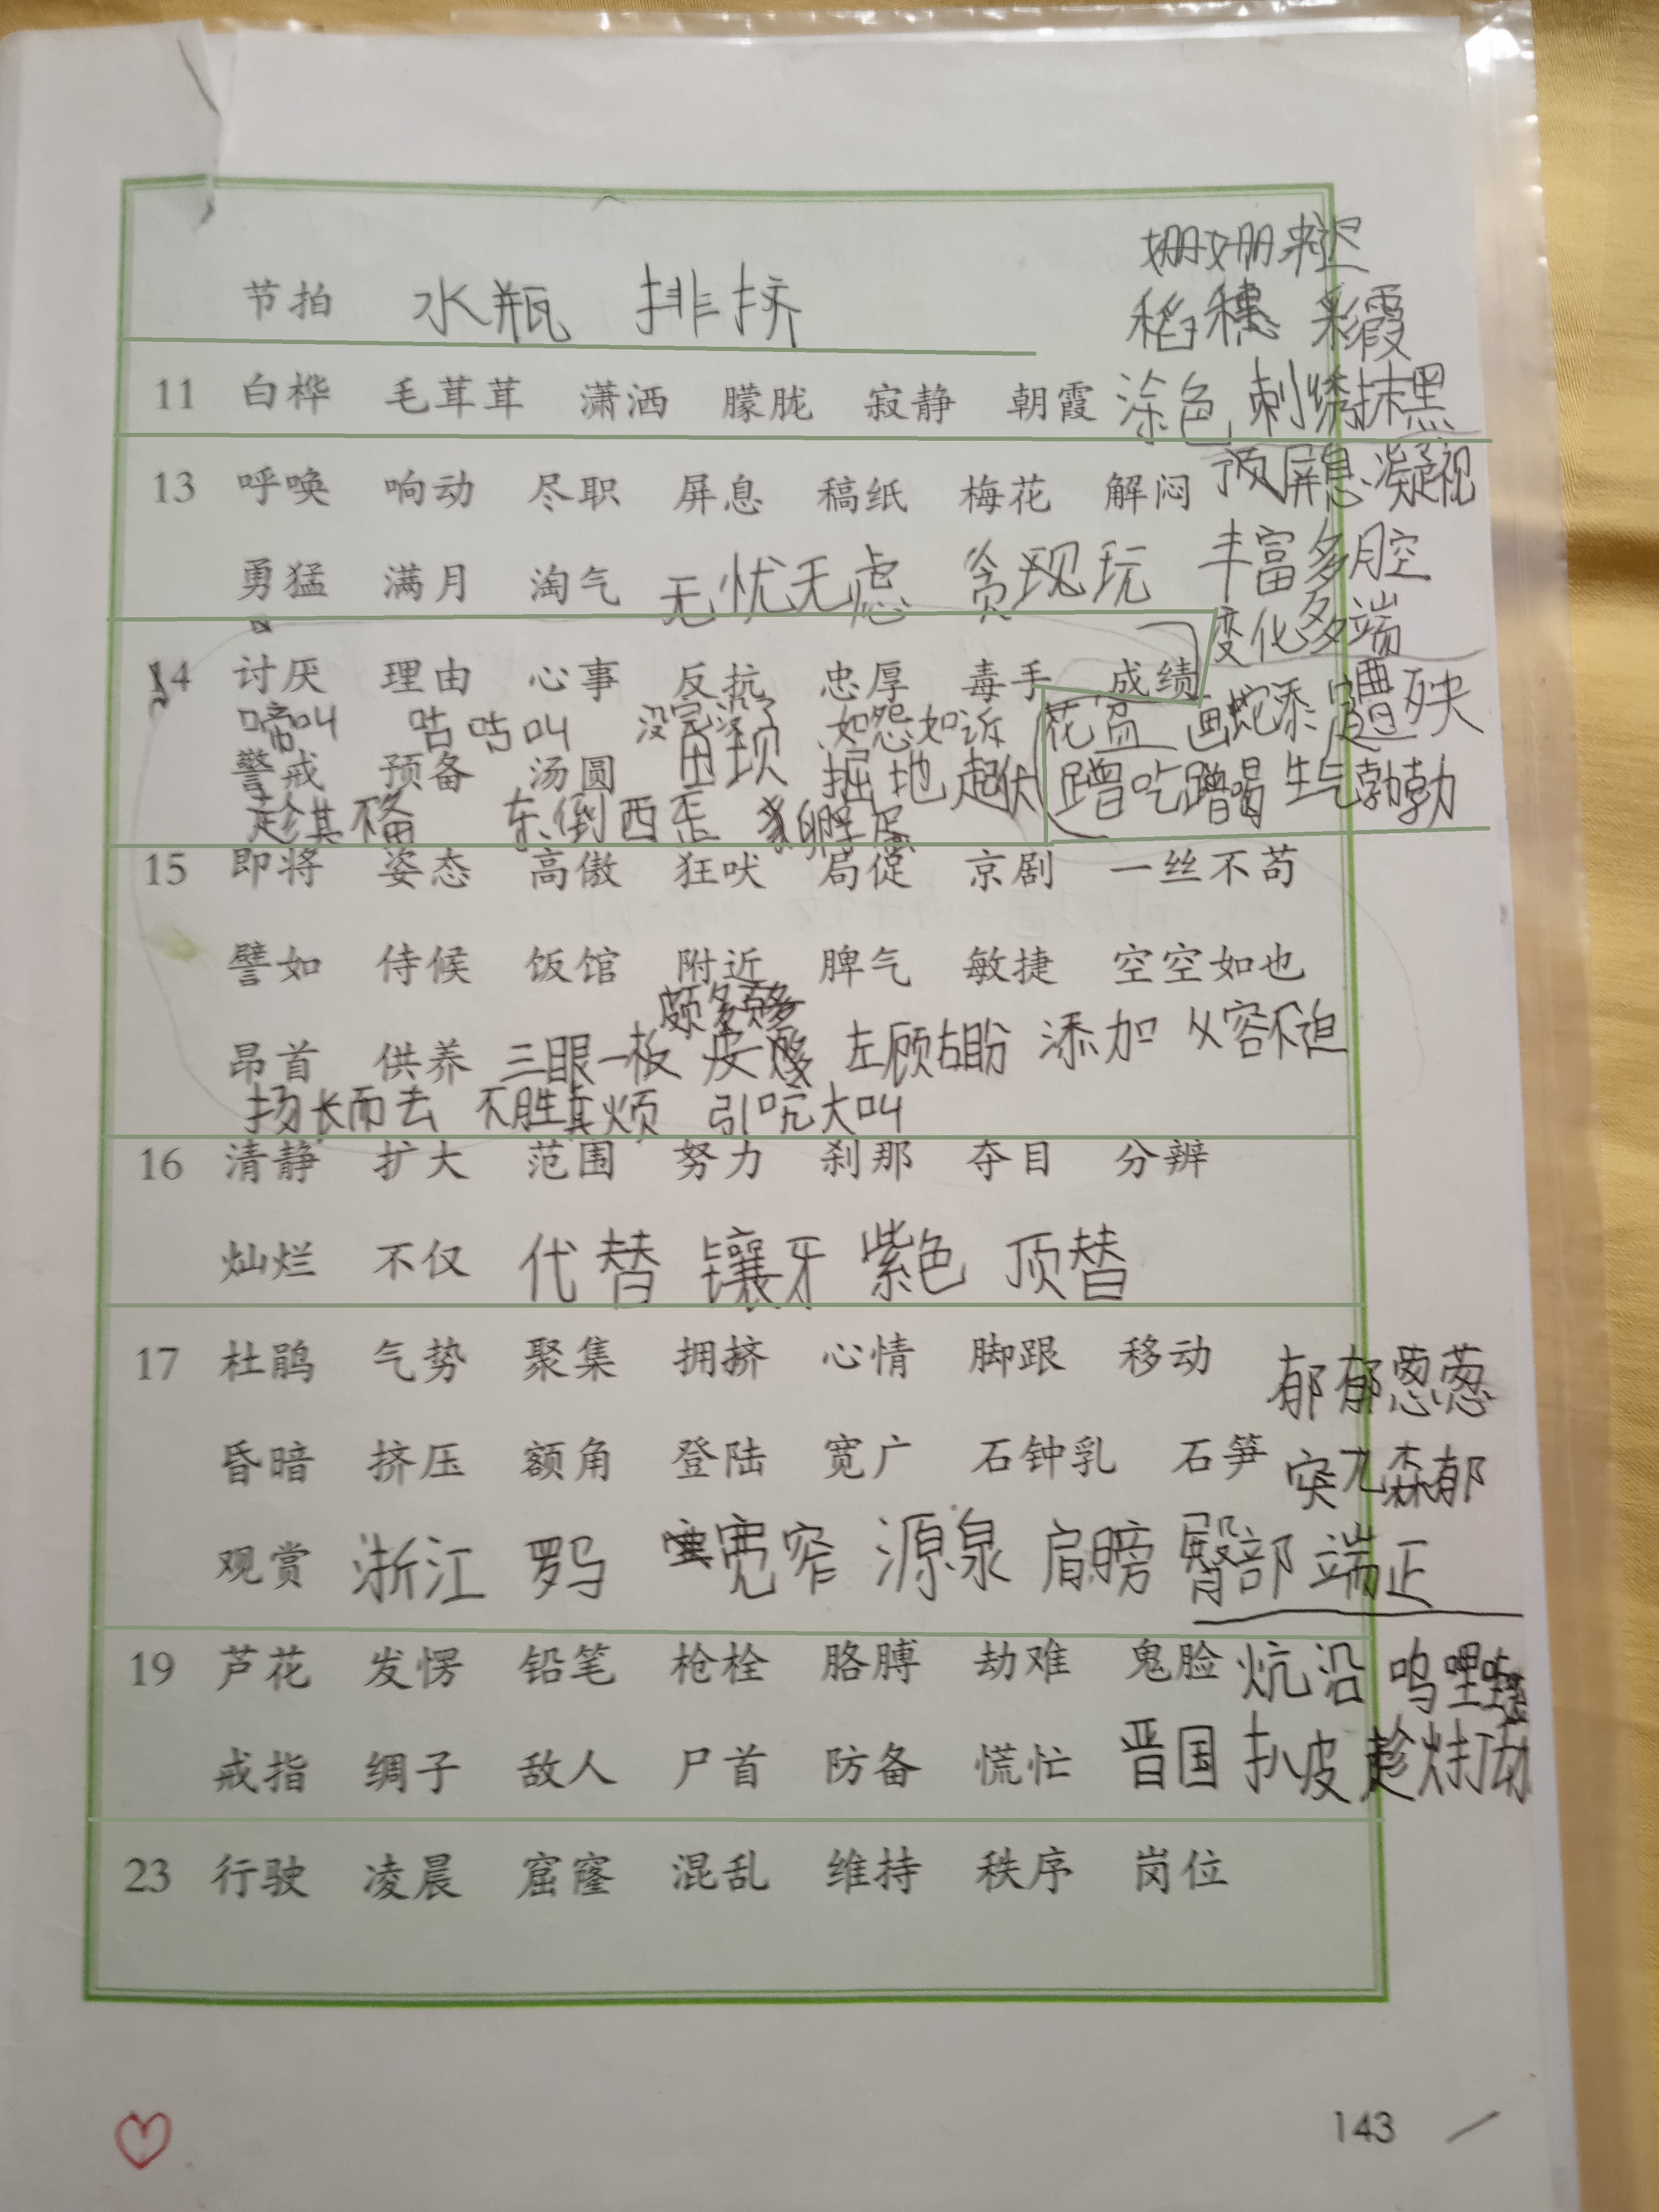 姗姗来迟
节拍 水瓶 排挤 稻穗 彩霞
11 白桦 毛茸茸 潇洒 朦胧 寂静 朝霞 涂色 刺绣 抹黑
13 呼唤 响动 尽职 屏息 稿纸 梅花 解闷 屏息凝视
勇猛 满月 淘气 无忧无虑 贪玩 丰富多腔
变化多端
14 讨厌 理由 心事 反抗 忠厚 毒手 成绩
啼叫 咕咕叫 没完没了 如怨如诉 花盆 画蛇添 遭殃
警戒 预备 汤圆 田坝 掘地 起伏 蹭吃蹭喝 生气勃勃
趁其不备 东倒西歪 孵蛋
15 即将 姿态 高傲 狂吠 局促 京剧 一丝不苟
譬如 侍候 饭馆 附近 脾气 敏捷 空空如也
颇多
昂首 供养 三眼一板 左顾右盼 添加 从容不迫
扬长而去 不胜其烦 引吭大叫
16 清静 扩大 范围 努力 刹那 夺目 分辨
灿烂 不仅 代替 镶牙 紫色 顶替
17 杜鹃 气势 聚集 拥挤 心情 脚跟 移动 郁郁葱葱
昏暗 挤压 额角 登陆 宽广 石钟乳 石笋 突兀森郁
观赏 浙江 罗马 宽窄 源泉 肩膀 臀部 端正
19 芦花 发愣 铅笔 枪栓 胳膊 劫难 鬼脸 炕沿 呜哩哇
戒指 绸子 敌人 尸首 防备 慌忙 晋国 扒皮 趁火打劫
23 行驶 凌晨 窟窿 混乱 维持 秩序 岗位
143